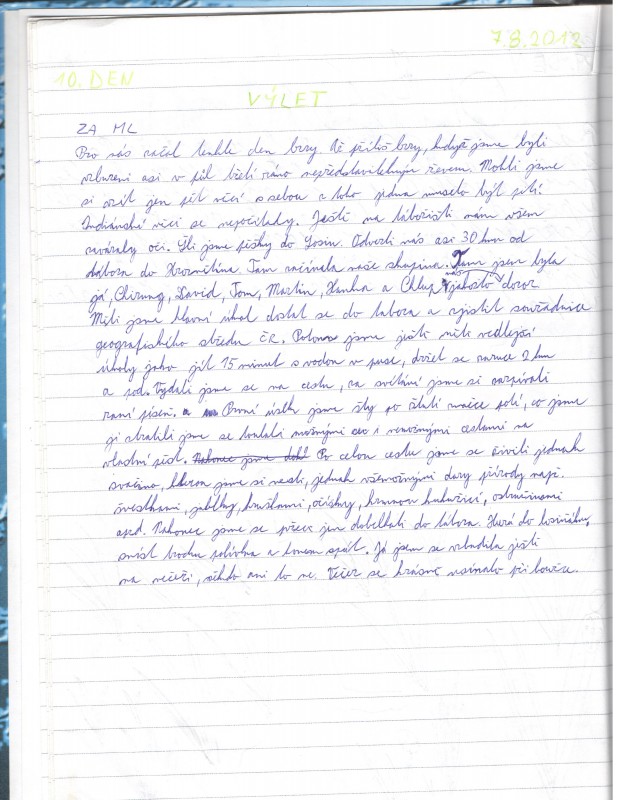 7.8.2012
10. DEN
VÝLET
ZA ML
Pro nás začal tenhle den brzy. Až příliš brzy, když jsme byli
vzbuzeni asi v půl třetí ráno nepředstavitelným řevem. Mohli jsme
si vzít jen pět věcí s sebou a toho jedna muselo být pití.
Indiánské věci se nepočítaly. Ještě na tábořišti nám všem
zavázaly oči. Šli jsme pěšky do Losin. Odvezli nás asi 30 km od
tábora do Tam začínala naše skupina. Tam jsem byla
já, Chirung, David, Tom, Martin, Hanka a Chlup náš jakosto dozor
Měli jsme hlavní úkol dostat se do tábora a zjistit souřadnice
geografického středu ČR. Potom jsme ještě měli vedlejší
úkoly jako jít 15 minut s vodou v puse, držet se za ruce 2 km
a pod. Vydali jsme se na cestu, za svítání jsme si zazpívali
ranní píseň. a První úsek jsme šly po žluté značce poté, co jsme
ji ztratili jsme se toulali možnými cec i nemožnými cestami na
vlastní pěst. Nakonec jsme došl Po celou cestu jsme se živili jednak
svačinou, kterou jsme si nesli, jednak všemožnými dary přírody např.
švestkami, jablky, hruškami, oříšky, kukuřicí, ostružinami
apd. Nakonec jsme se přece jen dobelhali do tábora. Hurá do
sníst trochu polévky a honem spát. Já jsem se vzbudila ještě
na večeři, někdo ani to ne. Večer se krásně usínalo při bouřce.